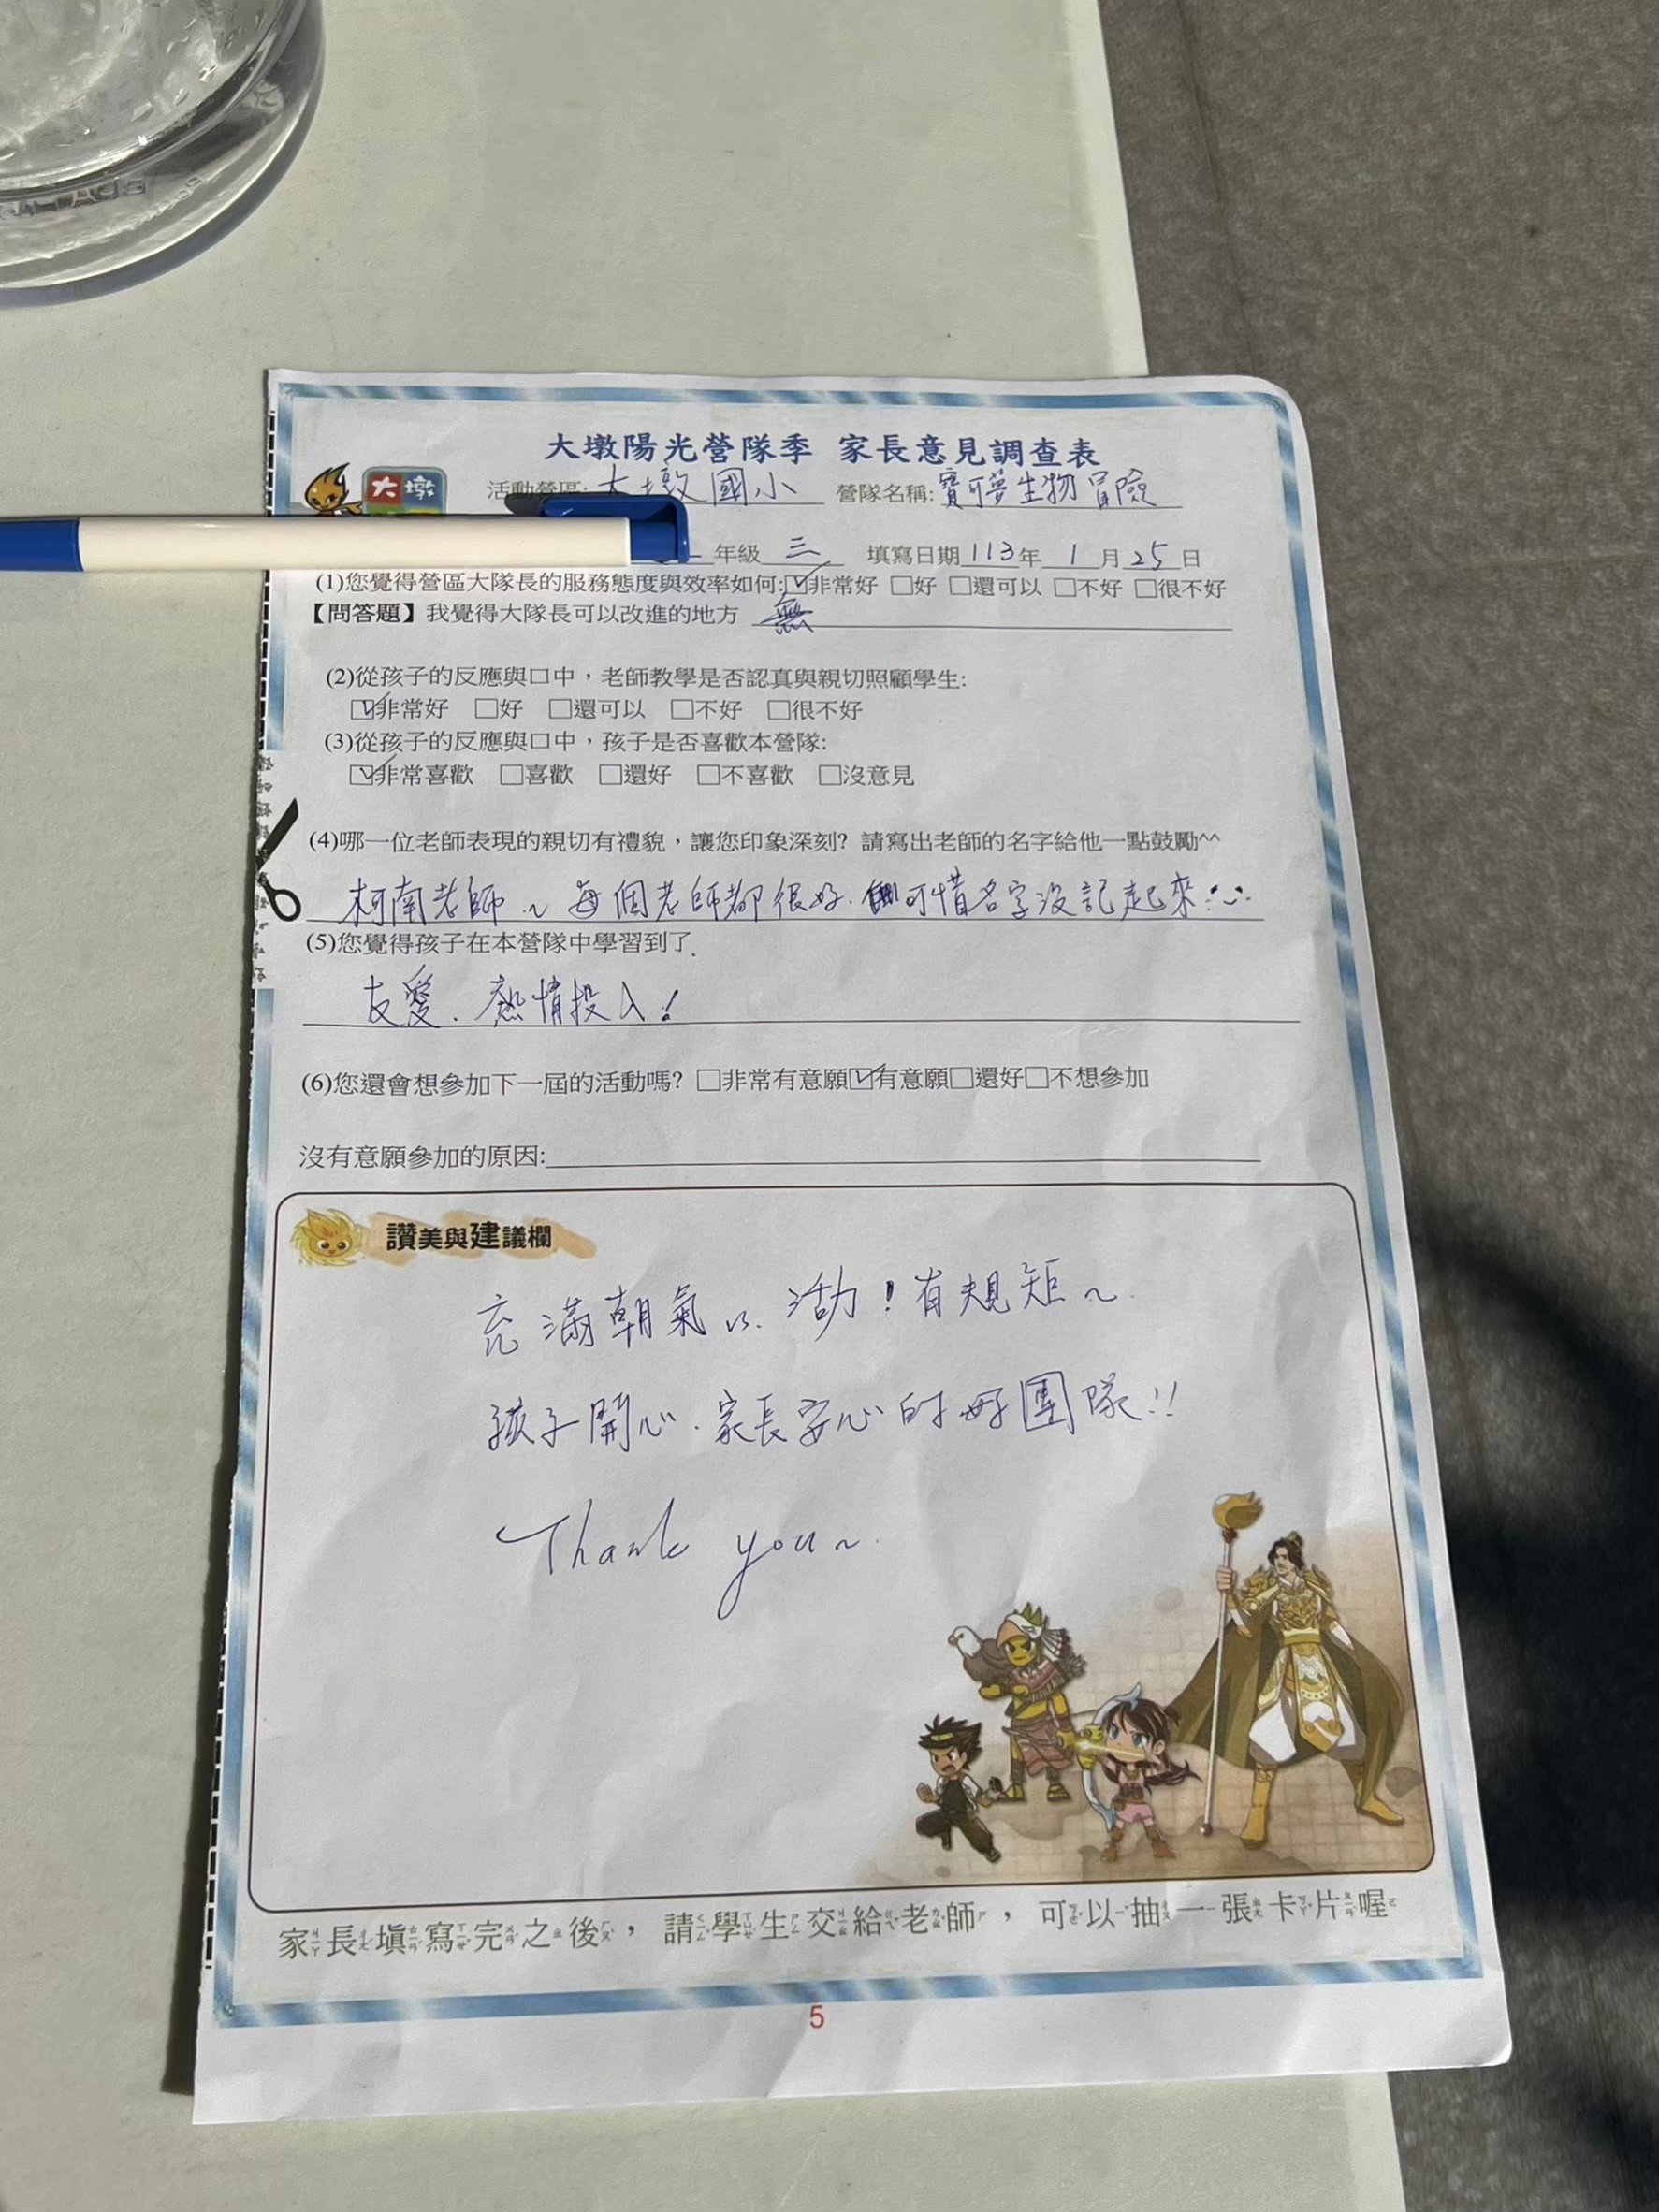 大墩陽光營隊季 家長意見調查表
大墩
活動營區: 大墩國小 營隊名稱: 寶可夢生物冒險
年級 三 填寫日期 113 年 1 月 25 日
(1)您覺得營區大隊長的服務態度與效率如何:☑非常好 □好 □還可以 □不好 □很不好
【問答題】我覺得大隊長可以改進的地方 無
(2)從孩子的反應與口中，老師教學是否認真與親切照顧學生:
☑非常好 □好 □還可以 □不好 □很不好
(3)從孩子的反應與口中，孩子是否喜歡本營隊:
☑非常喜歡 □喜歡 □還好 □不喜歡 □沒意見
(4)哪一位老師表現的親切有禮貌，讓您印象深刻? 請寫出老師的名字給他一點鼓勵^^
柯南老師~ 每個老師都很好. 可惜名字沒記起來
(5)您覺得孩子在本營隊中學習到了.
友愛. 熱情投入!
(6)您還會想參加下一屆的活動嗎? □非常有意願☑有意願□還好□不想參加
沒有意願參加的原因:
讚美與建議欄
充滿朝氣 活力! 有規矩~.
孩子開心. 家長安心的好團隊!!
Thank you~.
家長填寫完之後， 請學生交給老師， 可以抽一張卡片喔
5